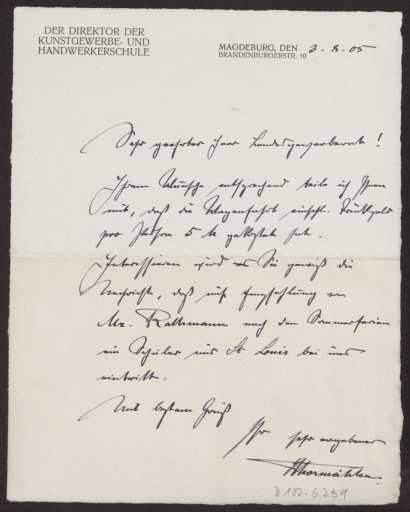 DER DIREKTOR DER
KUNSTGEWERBE- UND
HANDWERKERSCHULE
MAGDEBURG, DEN 3.8.05
BRANDENBURGERSTR. 10
Sehr geehrter Herr Landesgewerberat!
Ihrem Wunsche entsprechend teile ich Ihnen
mit, daß die Wagenfahrt einschl. Trinkgeld
pro Person 5 M gekostet hat.
Interessieren wird es Sie gewiß die
Nachricht, daß auf Empfehlung von
Mr. Rathmann nach den Sommerferien
ein Schüler aus St Louis bei uns
eintritt.
Mit bestem Gruß
Ihr sehr ergebener
Thormählen.
D 102-6239